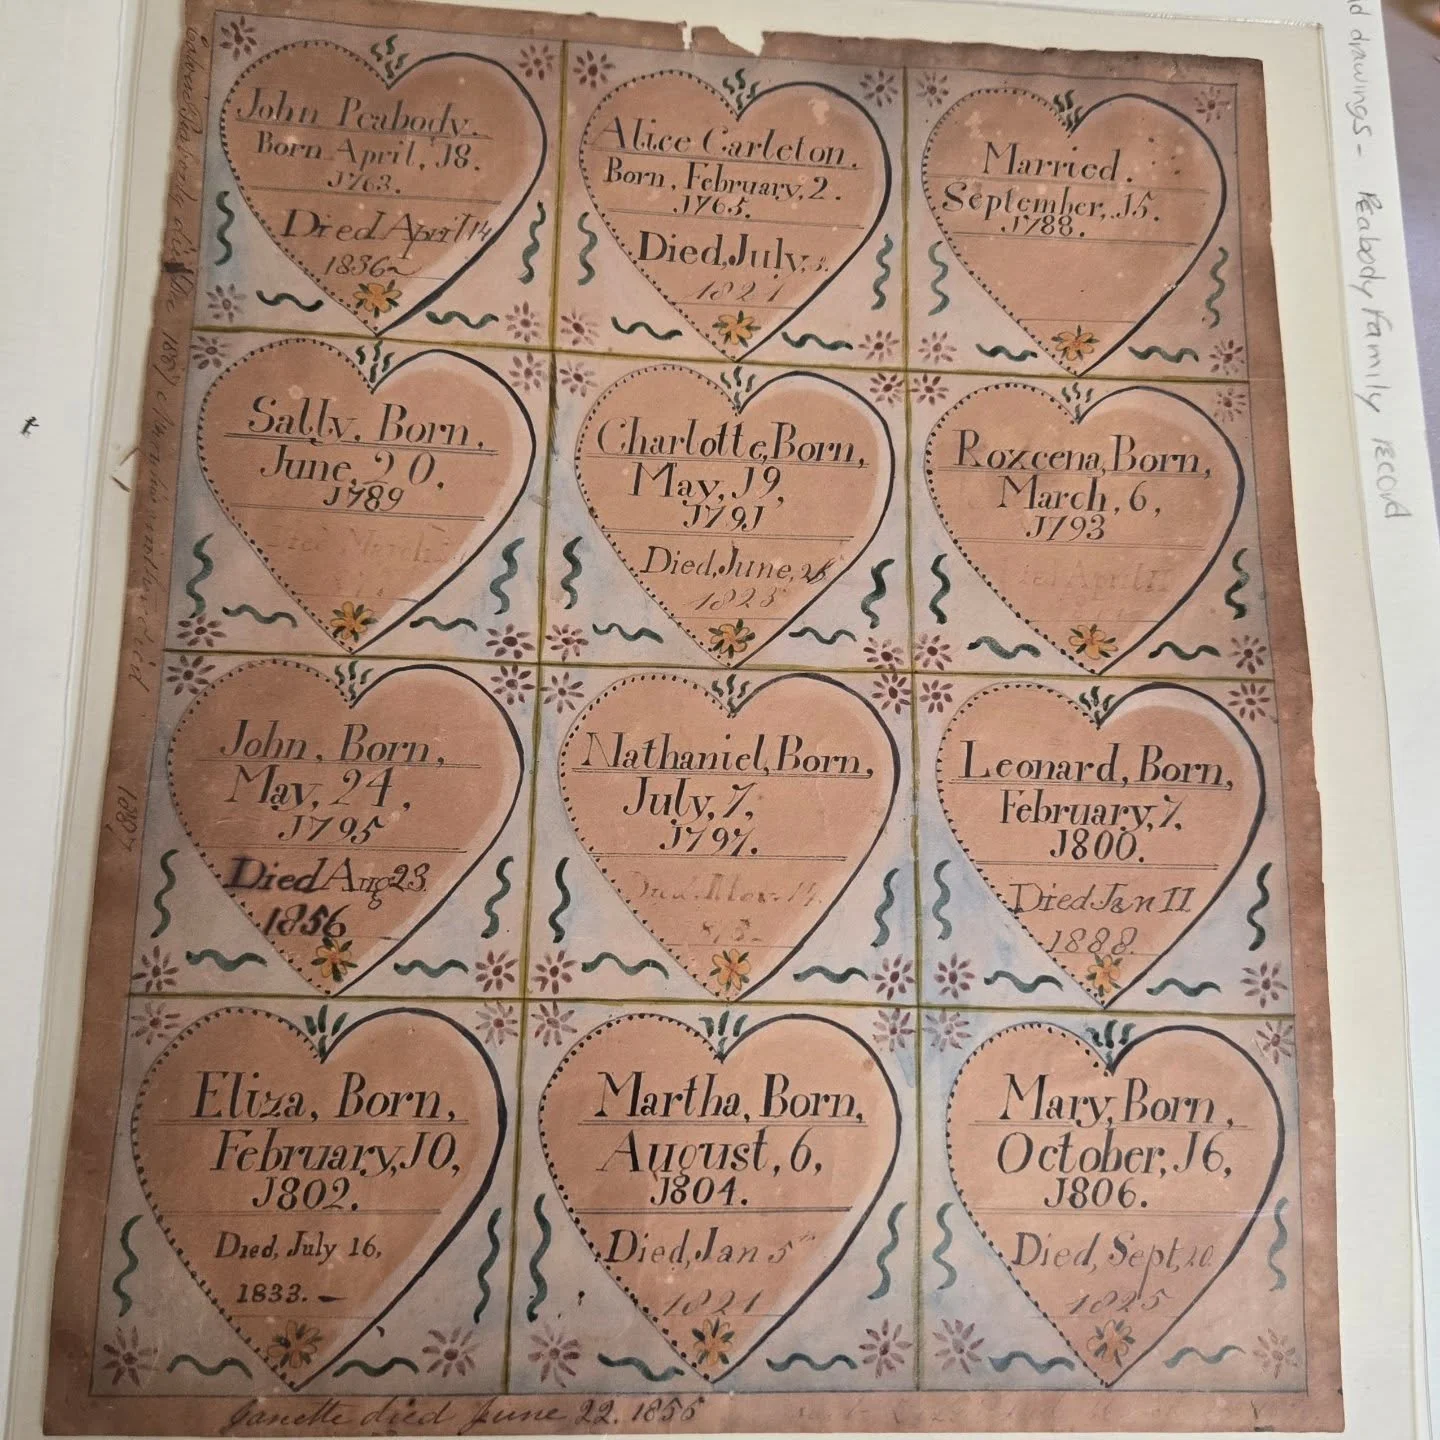 John Peabody.
Born April, J8.
J763.
Died April 14
1836
Alice Carleton.
Born, February, 2.
J765.
Died, July,
1821
Married.
September, J5.
J788.
Sally, Born,
June, 20.
J789
Died March
Charlotte, Born,
May, J9,
J79J
Died, June,
1825
Roxcena, Born,
March, 6,
J793
April 11
John, Born,
May, 24,
J795
Died Aug 23
1856
Nathaniel, Born,
July, 7,
J797.
Died. Nov. 14.
Leonard, Born,
February, 7,
J800.
Died Jan 11
1888
Eliza, Born,
February, J0,
J802.
Died, July 16,
1833.
Martha, Born,
August, 6,
J804.
Died, Jan 5th
1821
Mary, Born,
October, J6,
J806.
Died, Sept, 20
1825
died June 22. 1856
died
1887
drawings - Peabody Family record